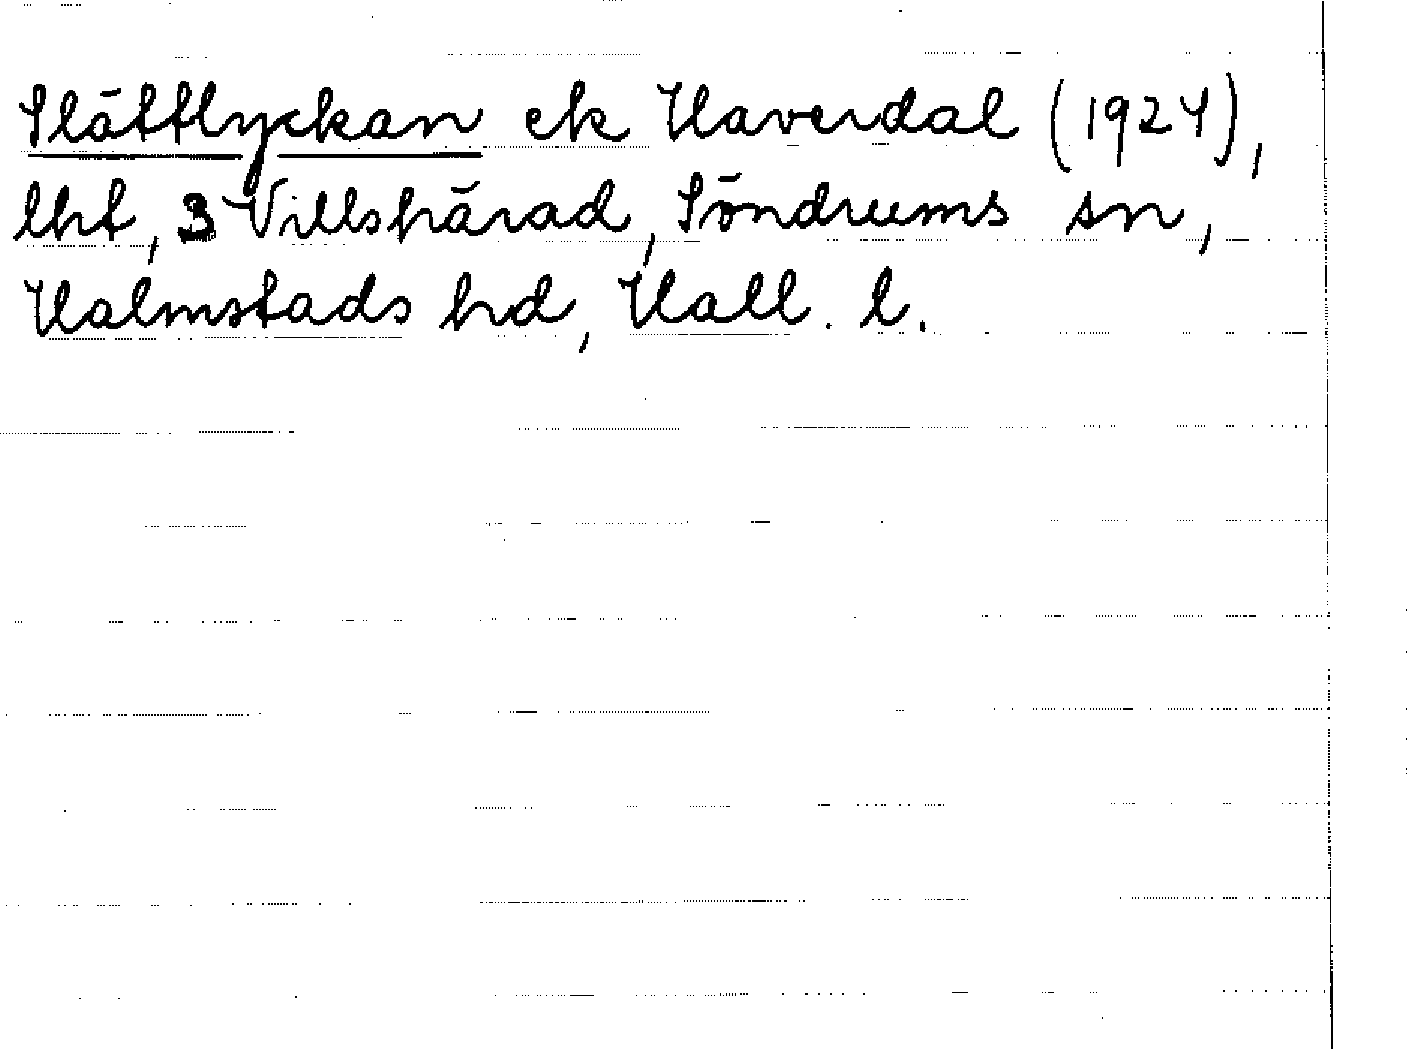 Slättlyckan ek Haverdal (1924),
lht, 3 Villshärad, Söndrums sn,
Halmstads hd, Hall. l.